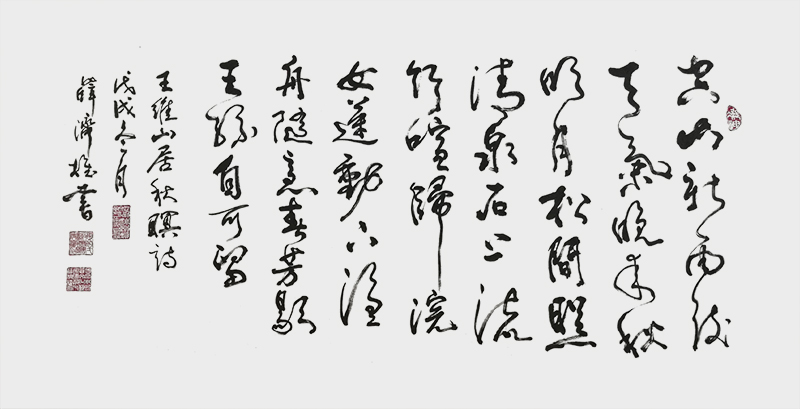 空山新雨後
天氣晚来秋
明月松間照
清泉石上流
竹喧歸浣
女蓮動下漁
舟隨意春芳歇
王孫自可留
王維山居秋暝詩
戊戌冬月
薛濟書